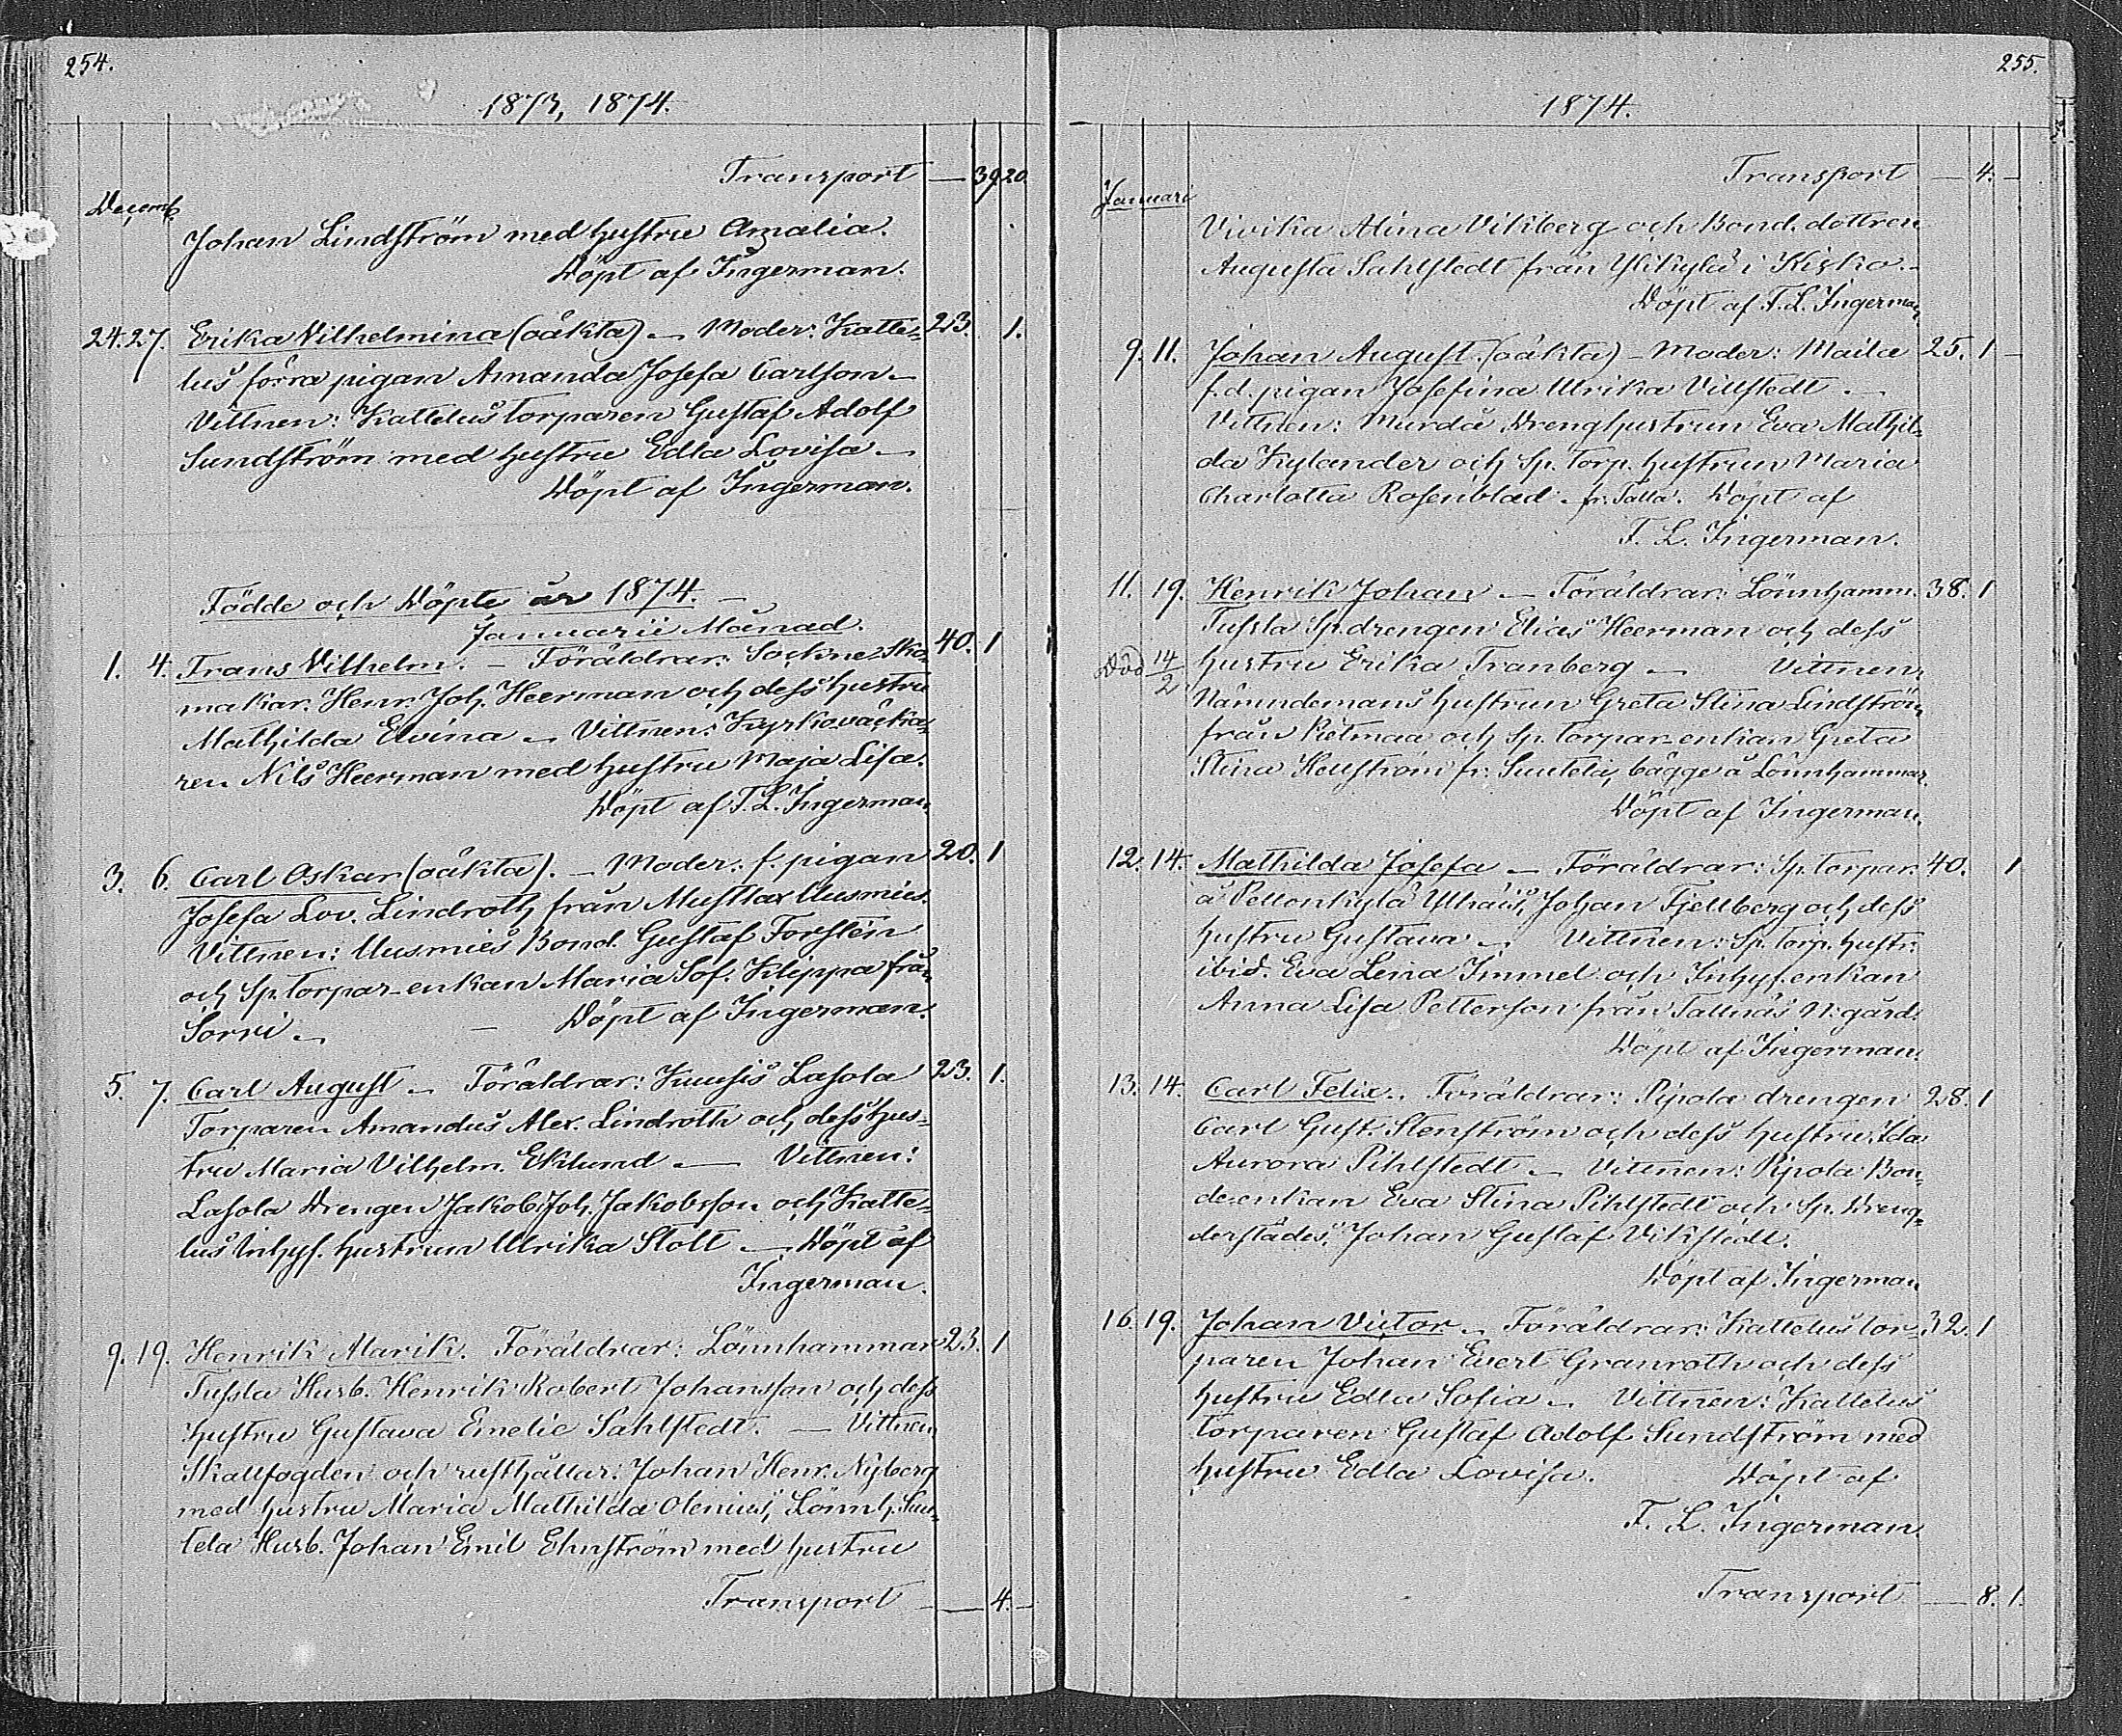 254.
1873, 1874.
Transport — 39 20.
Decemb.
Johan Lindström med hustru Amalia.
Döpt af Ingerman.
24. 27. Erika Vilhelmina (oäkta) — Moder: Katte- 23. 1.
lus förra pigan Amanda Josefa Carlson —
Vittnen: Kattelus torparen Gustaf Adolf
Sundström med hustru Edla Lovisa —
Döpt af Ingerman.
Födde och Döpte år 1874. —
Januarii Månad.
1. 4. Frans Vilhelm. — Föräldrar: Sockne Sko- 40. 1
makar. Henr. Joh. Heerman och dess hustru
Mathilda Elvina — Vittnen: Kyrkoväcka-
ren Nils Heerman med hustru Maja Lisa.
Döpt af F. L. Ingerman.
3. 6. Carl Oskar (oäkta). — Moder: f. pigan 20. 1
Josefa Lov. Lindroth från Mustlax Uusmies.
Vittnen: Uusmies Bond. Gustaf Forstén
och Sp. Torpar-enkan Maria Sof. Klippa från
Sorvi — — Döpt af Ingerman
5. 7. Carl August — Föräldrar: Kuusis Lasola 23. 1.
Torparen Amandus Alex. Lindroth och dess hus-
tru Maria Vilhelm. Eklund — Vittnen:
Lasola Drengen Jakob Joh. Jakobsson och Katte-
lus Inhys. hustrun Ulrika Stolt — Döpt af
Ingerman.
9. 19. Henrik Alarik. Föräldrar: Lönnhammar 23. 1
Tussla Husb. Henrik Robert Johansson och dess
hustru Gustava Emelie Sahlstedt. — Vittnen
Skallfogden och rusthållar. Johan Henr. Nyberg
med hustru Maria Mathilda Olenius, Lönnh. Suu-
tela Husb. Johan Emil Ehnström med hustru
Transport — 4. —
255.
1874.
Transport — 4. —
Januari
Vivika Alina Vikberg och Bond. dottren
Augusta Sahlstedt från Ylikylä i Kisko. —
Döpt af F. L. Ingerman
9. 11. Johan August. (oäkta) — Moder: Maila 25. 1 —
f. d. pigan Josefina Ulrika Villstedt —
Vittnen: Murdä Drenghustrun Eva Mathil-
da Kylander och Sp. torp. hustrun Maria
Charlotta Rosenblad. fr. Talla. Döpt af
F. L. Ingerman.
11. 19. Henrik Johan — Föräldrar: Lönnhamm. 38. 1
Tussla Sp. drengen Elias Heerman och dess
Död 14/2 hustru Erika Tranberg — Vittnen,
Nämndemans hustrun Greta Stina Lindström,
från Pietmaa och Sp. torpar-enkan Greta
Stina Henström fr. Suutela, bägge å Lönnhammar.
Döpt af Ingerman.
12. 14. Mathilda Josefa — Föräldrar: Sp. torpar. 40. 1
å Pellonkylä Ylhäis, Johan Fjellberg och dess
hustru Gustava — Vittnen: Sp. torp. hustr.
ibid. Eva Lena Immel och Inhys. enkan
Anna Lisa Petterson från Tallnäs N. gård.
Döpt af Ingerman.
13. 14. Carl Felix. Föräldrar: Pipola drengen 28. 1
Carl Gust. Stenström och dess hustru Ida
Aurora Pihlstedt — Vittnen: Pipola Bon-
de-enkan Eva Stina Pihlstedt och Sp. Dreng.
derstädes, Johan Gustaf Vikstedt.
Döpt af Ingerman
16. 19. Johan Victor — Föräldrar: Kattelus tor- 32. 1
paren Johan Evert Granroth och dess
hustru Edla Sofia — Vittnen: Kattelus
torparen Gustaf Adolf Sundström med
hustru Edla Lovisa. Döpt af
F. L. Ingerman
Transport — 8. 1.